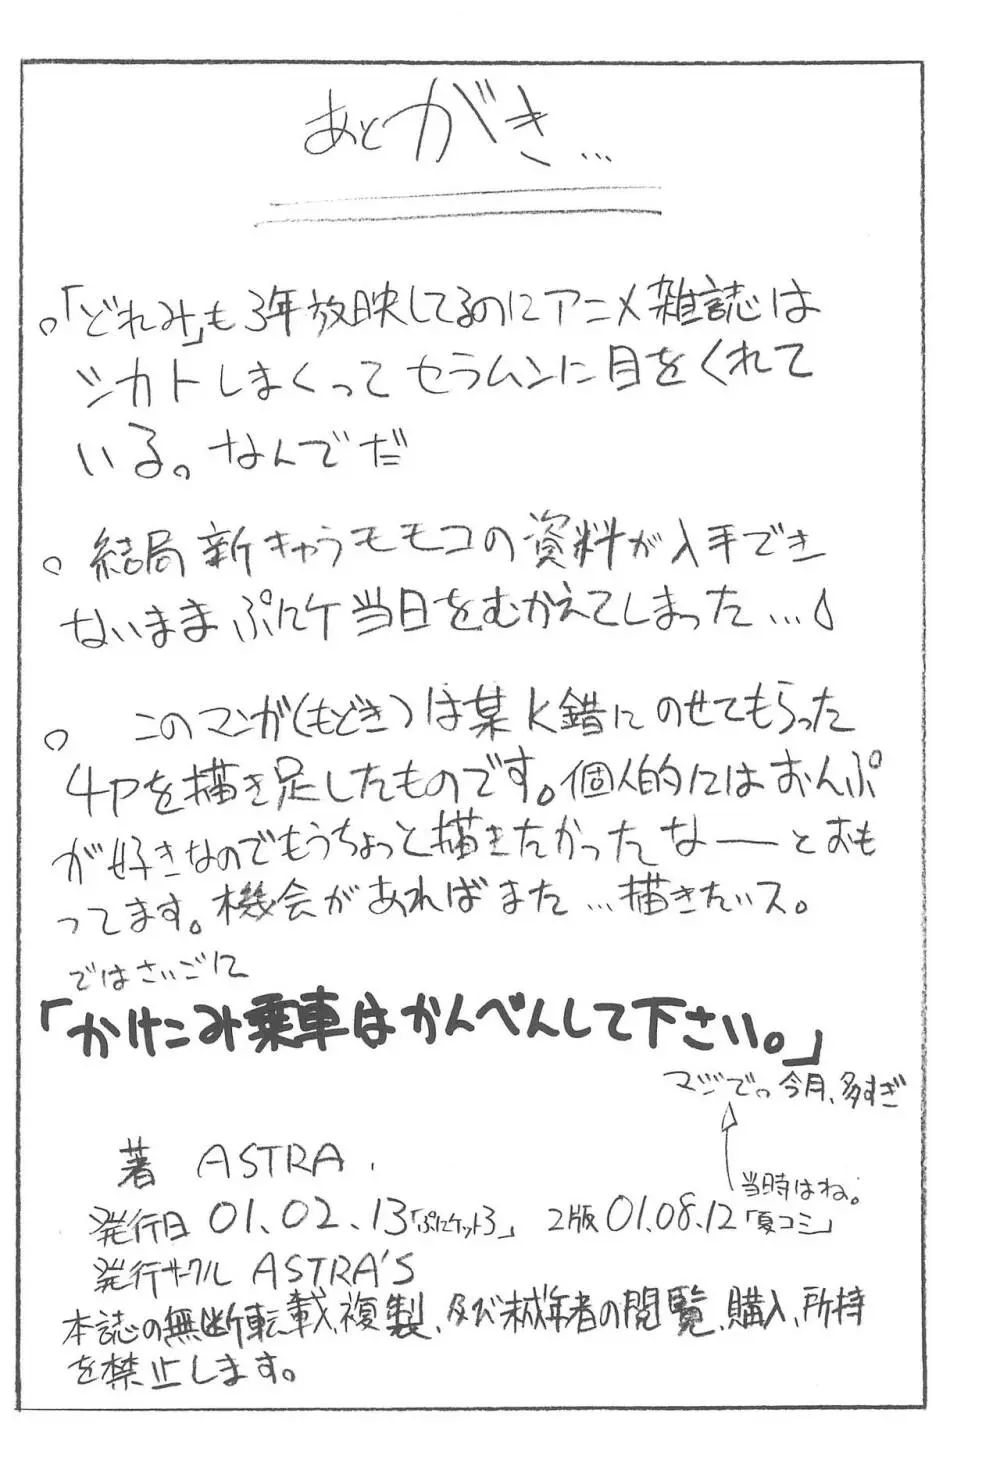 あとがき…
。「どれみ」も3年放映してるのにアニメ雑誌は
シカトしまくってセラムンに目をくれて
いる。なんでだ
。結局新キャラモモコの資料が入手でき
ないままぷにケ当日をむかえてしまった…
。このマンガ(もどき)は某K錯にのせてもらった
4Pを描き足したものです。個人的にはおんぷ
が好きなのでもうちょっと描きたかったなーとおも
ってます。機会があればまた…描きたいス。
ではさいごに
「かけこみ乗車はかんべんして下さい。」
マジで。今月、多すぎ
当時はね。
著 ASTRA.
発行日 01.02.13「ぷにケット3」 2版 01.08.12「夏コミ」
発行サークル ASTRA'S
本誌の無断転載、複製、及び未成年者の閲覧、購入、所持
を禁止します。